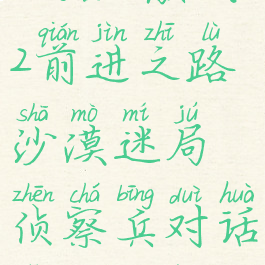 qián jìn zhī lù
2前进之路
shā mò mí jú
沙漠迷局
zhēn chá bīng duì huà
侦察兵对话